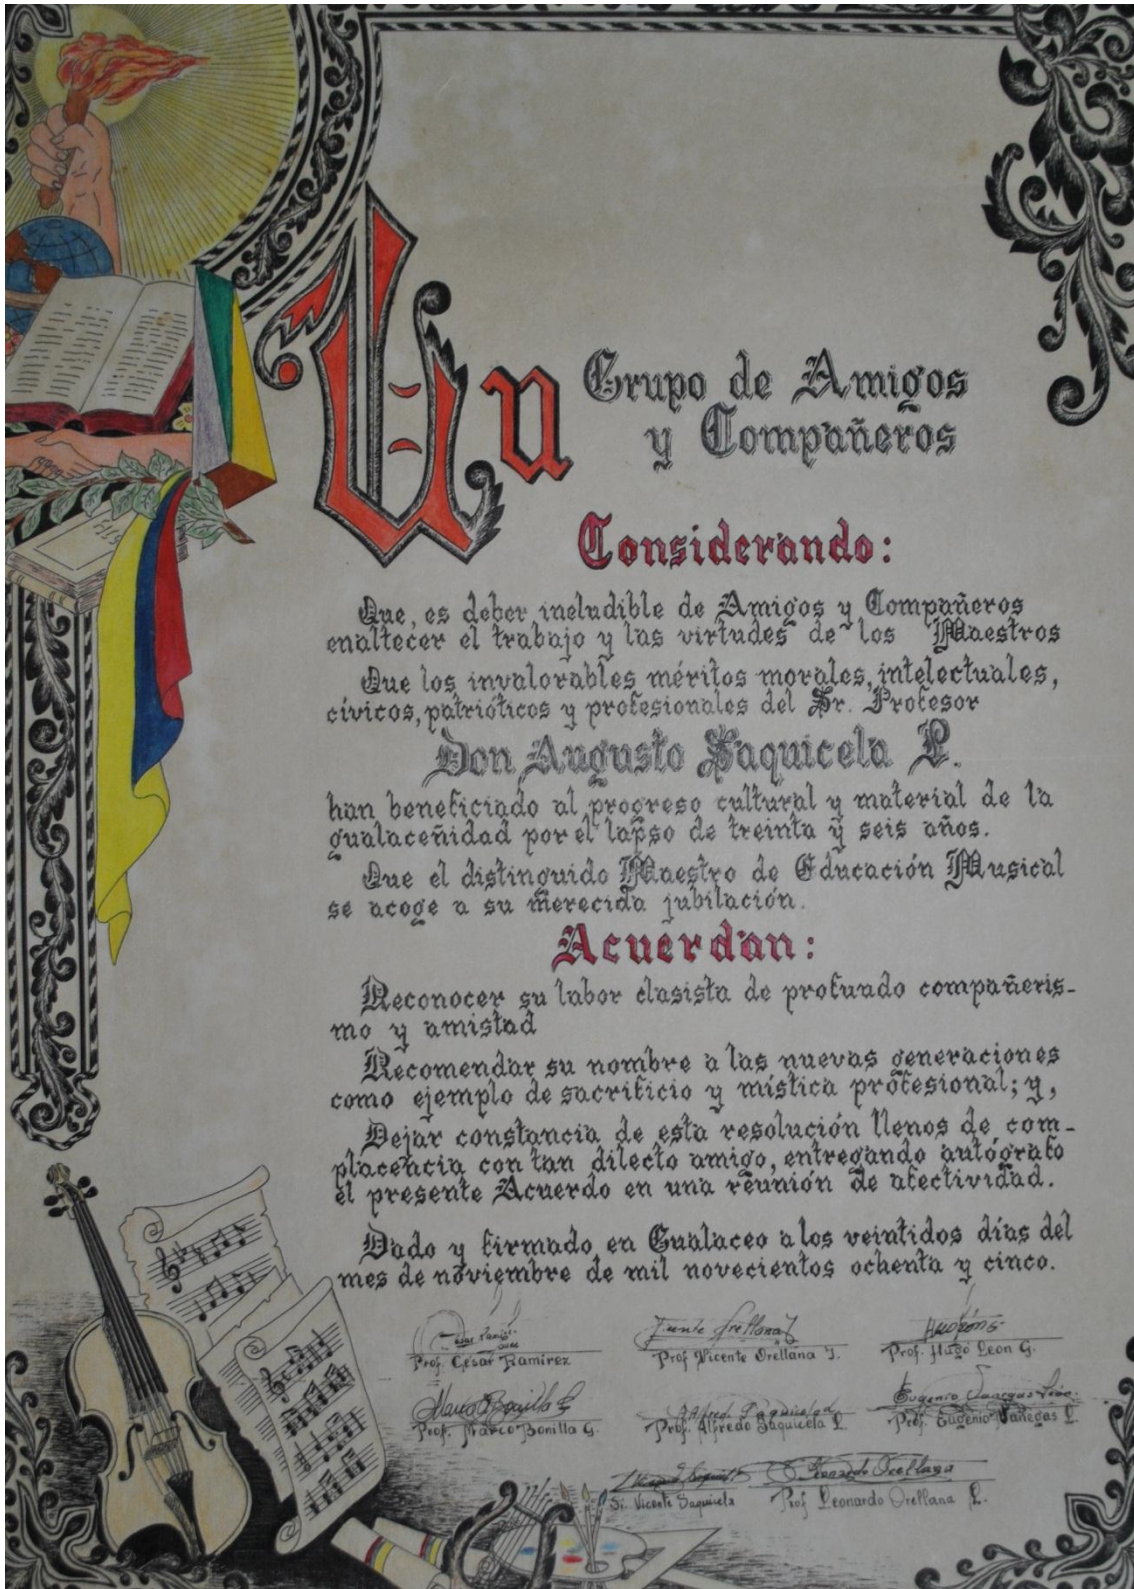 Un Grupo de Amigos
y Compañeros
Considerando:
Que, es deber ineludible de Amigos y Compañeros
enaltecer el trabajo y las virtudes de los Maestros
Que los invalorables méritos morales, intelectuales,
cívicos, patrióticos y profesionales del Sr. Profesor
Don Augusto Saquicela P.
han beneficiado al progreso cultural y material de la
gualaceñidad por el lapso de treinta y seis años.
Que el distinguido Maestro de Educación Musical
se acoge a su merecida jubilación.
Acuerdan:
Reconocer su labor clasista de profundo compañeris-
mo y amistad
Recomendar su nombre a las nuevas generaciones
como ejemplo de sacrificio y mística profesional; y,
Dejar constancia de esta resolución llenos de com-
placencia con tan dilecto amigo, entregando autógrafo
el presente Acuerdo en una reunión de afectividad.
Dado y firmado en Gualaceo a los veintidos días del
mes de noviembre de mil novecientos ochenta y cinco.
Prof. César Ramírez Prof. Vicente Orellana J. Prof. Hugo León G.
Marco Bonilla G Eugenio Vanegas León
Prof. Marco Bonilla G. Prof. Alfredo Saquicela L. Prof. Eugenio Vanegas L.
Leonardo Orellana
Sr. Vicente Saquicela Prof Leonardo Orellana L.